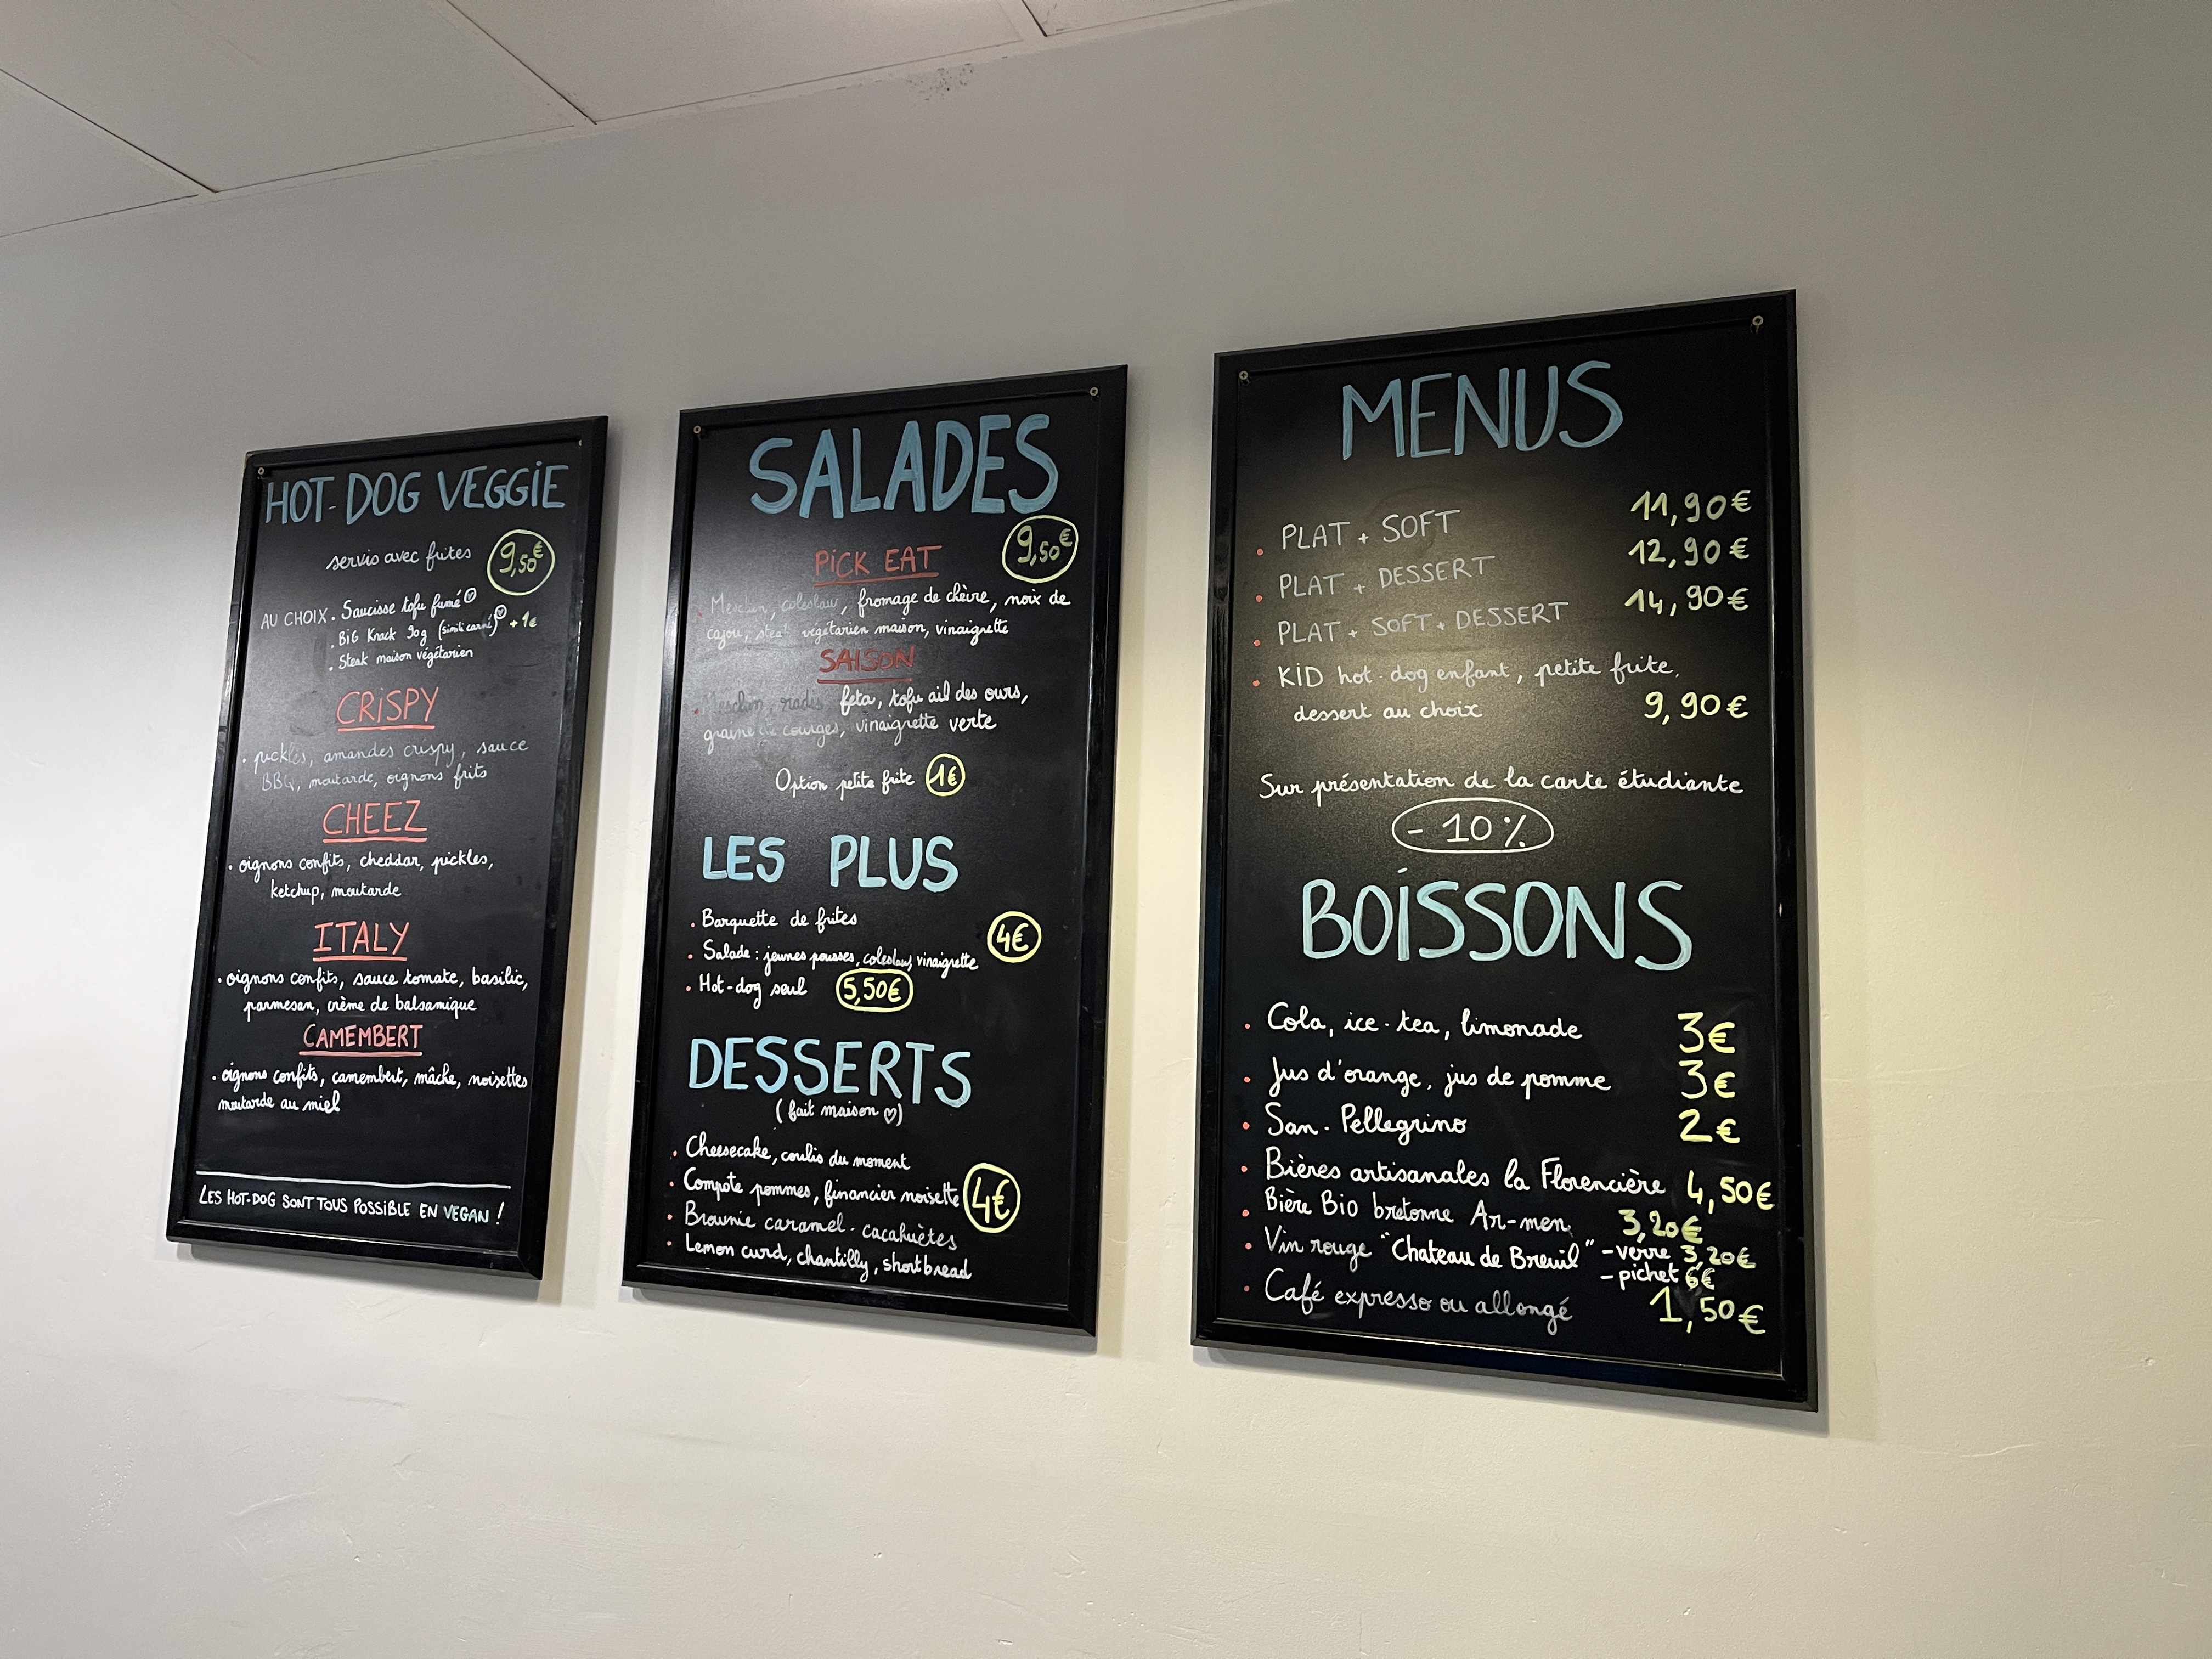 HOT-DOG VEGGIE
servis avec frites 9,50€
AU CHOIX . Saucisse tofu fumé
. BIG Knack 90g (simili carné) +1€
. Steak maison végétarien
CRISPY
. pickles, amandes crispy, sauce
BBQ, moutarde, oignons frits
CHEEZ
. oignons confits, cheddar, pickles,
ketchup, moutarde
ITALY
. oignons confits, sauce tomate, basilic,
parmesan, crème de balsamique
CAMEMBERT
. oignons confits, camembert, mâche, noisettes
moutarde au miel
LES HOT-DOG SONT TOUS POSSIBLE EN VEGAN !
SALADES
PICK EAT 9,50€
. Mesclun, coleslaw, fromage de chèvre, noix de
cajou, steak végétarien maison, vinaigrette
SAISON
. Mesclun, radis, feta, tofu ail des ours,
graine de courges, vinaigrette verte
Option petite frite 1€
LES PLUS
. Barquette de frites
. Salade : jeunes pousses, coleslaw, vinaigrette 4€
. Hot-dog seul 5,50€
DESSERTS
( fait maison ♡)
. Cheesecake, coulis du moment
. Compote pommes, financier noisette 4€
. Brownie caramel - cacahuètes
. Lemon curd, chantilly, shortbread
MENUS
. PLAT + SOFT 11,90€
. PLAT + DESSERT 12,90€
. PLAT + SOFT + DESSERT 14,90€
. KID hot-dog enfant, petite frite,
dessert au choix 9,90€
Sur présentation de la carte étudiante
- 10%
BOISSONS
. Cola, ice-tea, limonade 3€
. Jus d'orange, jus de pomme 3€
. San-Pellegrino 2€
. Bières artisanales la Florencière 4,50€
. Bière Bio bretonne Ar-men 3,20€
. Vin rouge "Chateau de Breuil" - verre 3,20€
- pichet 6€
. Café expresso ou allongé 1,50€